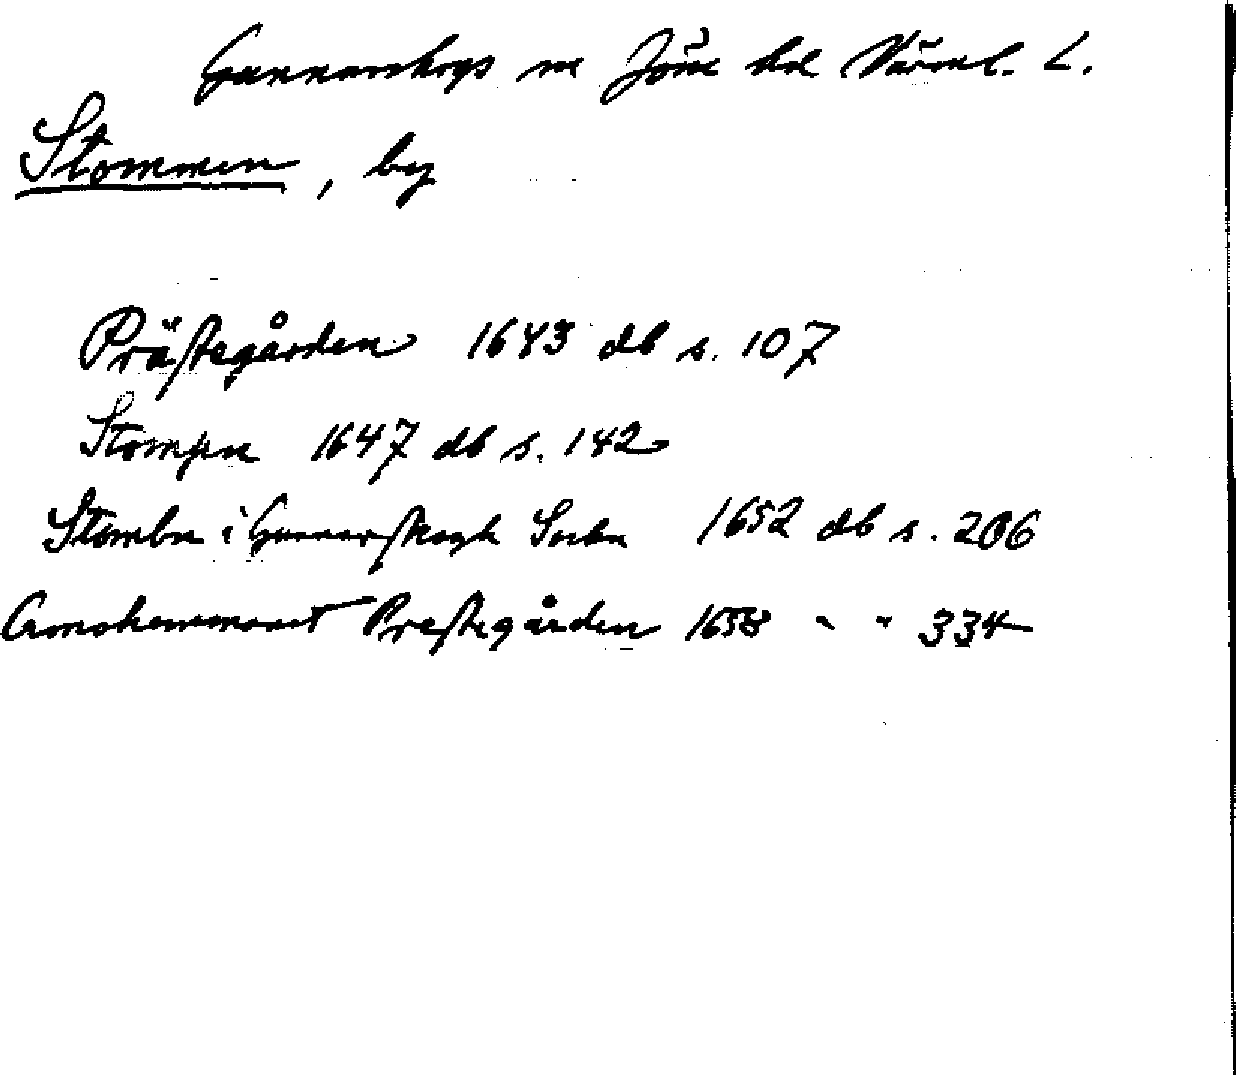 Gunnarskogs sn Jösse hd Värml. L.
Stommen, by
Prästegården 1643 db s. 107
Stompn 1647 db s. 142
Stombn i Gunnarskogh Sockn 1652 db s. 206
Prestegården 1658 " " 334